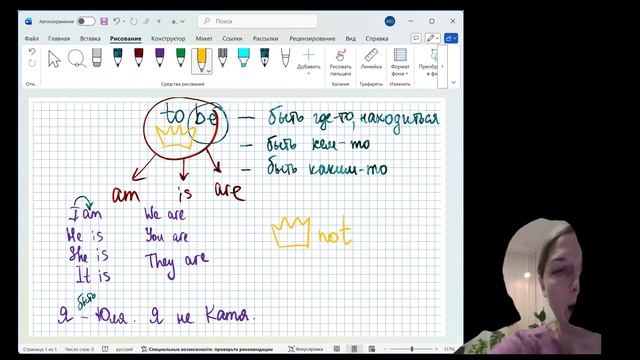 Автосохранение
Поиск
АЮ
Файл Главная Вставка Рисование Конструктор Макет Ссылки Рассылки Рецензирование Вид Справка
Отм...
Добавить
Рисовать пальцем
Линейка
Формат фона
Преобр в фи
Средства рисования
Касание
Трафареты
Изменить
to be — быть где-то, находиться
— быть кем-то
— быть каким-то
am is are
I am We are
He is You are
She is They are
It is
not
быть
Я – Юля. Я не Катя.
Страница 1 из 1 Число слов: 0 русский Специальные возможности: проверьте рекомендации Фокусировка 117%